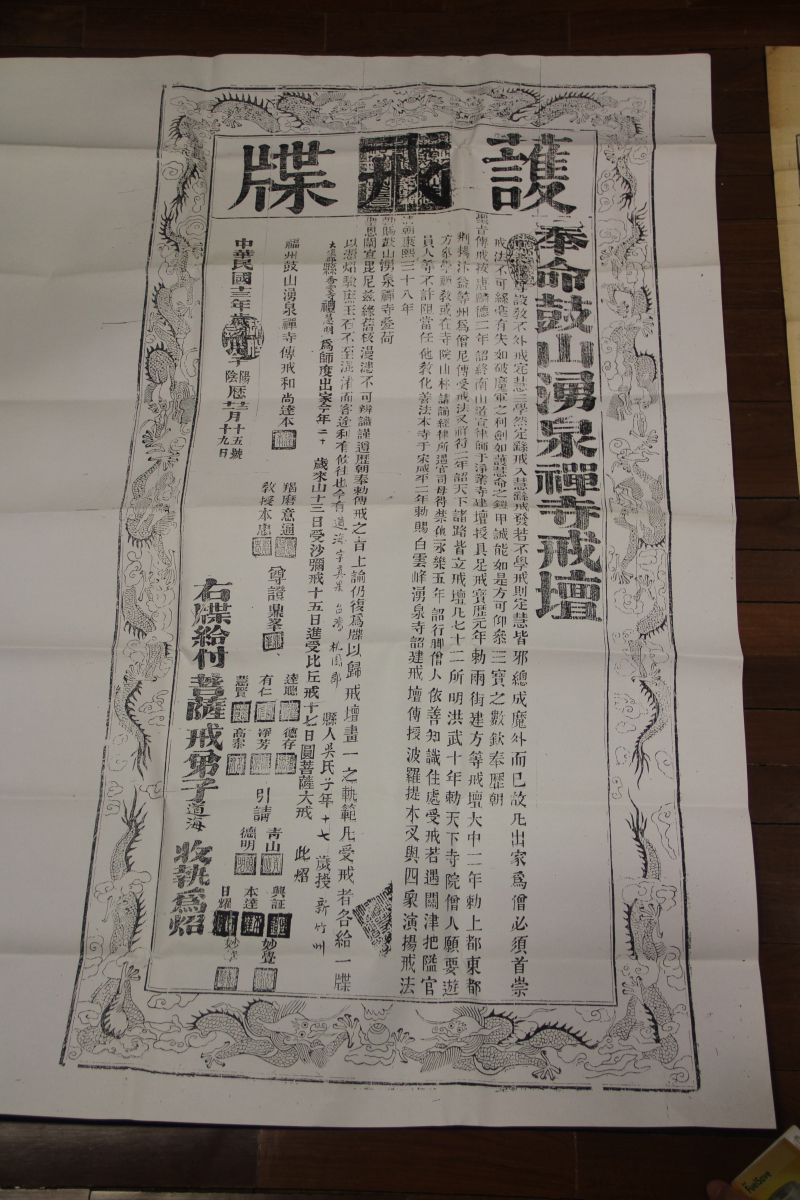 護戒牒
奉命鼓山湧泉禪寺戒壇
教不外戒定慧三學然定緣戒入慧緣戒發若不學戒則定慧皆邪總成魔外而已故凡出家爲僧必須首崇
戒法不可緣毫有失如破魔軍之利劍如護慧命之鎧甲誠能如是方可仰叅三寶之數欽奉歷朝
聖旨傳戒按唐麟德二年詔終南山道宣律師于淨業寺建壇授具足戒寶歷元年勅兩街建方等戒壇大中二年勅上都東都
荊揚汴益等州爲僧尼傳受戒法又祥符二年詔天下諸路皆立戒壇凡七十二所明洪武十年勅天下寺院僧人願要遊
方叅學禪教或在寺院山林講誦經律所遇官司毋得禁魚永樂五年詔行脚僧人依善知識住處受戒若遇關津把隘官
員人等不許阻當任他教化善法本寺于宋咸平二年勅賜白雲峰湧泉寺詔建戒壇傳授波羅提木叉與四衆演揚戒法
朝康熙三十八年
賜鼓山湧泉禪寺叠荷
恩闡宣毘尼茲緣舊板漫漶不可辨識謹遵歷朝奉勅傳戒之旨上諭仍復爲牒以歸戒壇畫一之軌範凡受戒者各給一牒
以憑炤驗庶玉石不至混淆而客途利有攸往也今有道海字真果台灣桃園郡縣人吳氏子年十七歲投新竹州
禮慧明爲師度出家今年二十歲來山十三日受沙彌戒十五日進受比丘戒十七日圓菩薩大戒此炤
福州鼓山湧泉禪寺傳戒和尚達本
羯磨意通
教授本忠
尊證鼎峯
達聰
有仁
慧賢
德存
淨芳
高泰
引請
青山
德明
興証
本達
日耀
妙豐
中華民國十三年歲
陰陽歷十二月十五十九日號
右牒給付菩薩戒弟子道海收執爲炤